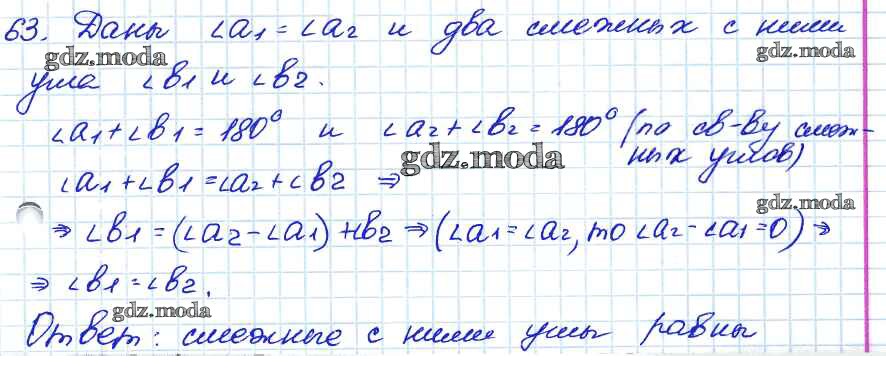 63. Даны ∠a1 = ∠a2 и два смежных с ними
gdz.moda
gdz.moda
угла ∠b1 и ∠b2.
∠a1 + ∠b1 = 180° и ∠a2 + ∠b2 = 180° (по св-ву смеж-
ных углов)
gdz.moda
∠a1 + ∠b1 = ∠a2 + ∠b2 ⇒
gdz.moda
⇒ ∠b1 = (∠a2 - ∠a1) + ∠b2 ⇒ (∠a1 = ∠a2, то ∠a2 - ∠a1 = 0) ⇒
⇒ ∠b1 = ∠b2.
gdz.moda
Ответ: смежные с ними углы равны